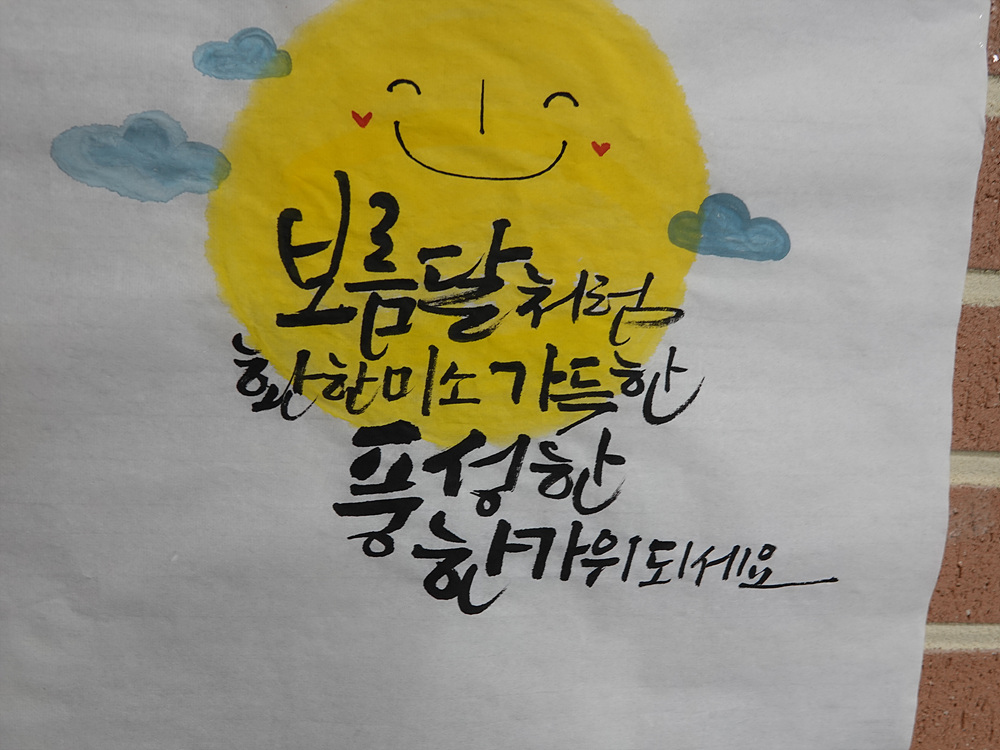 보름달처럼
환한 미소 가득한
풍성한
한가위 되세요